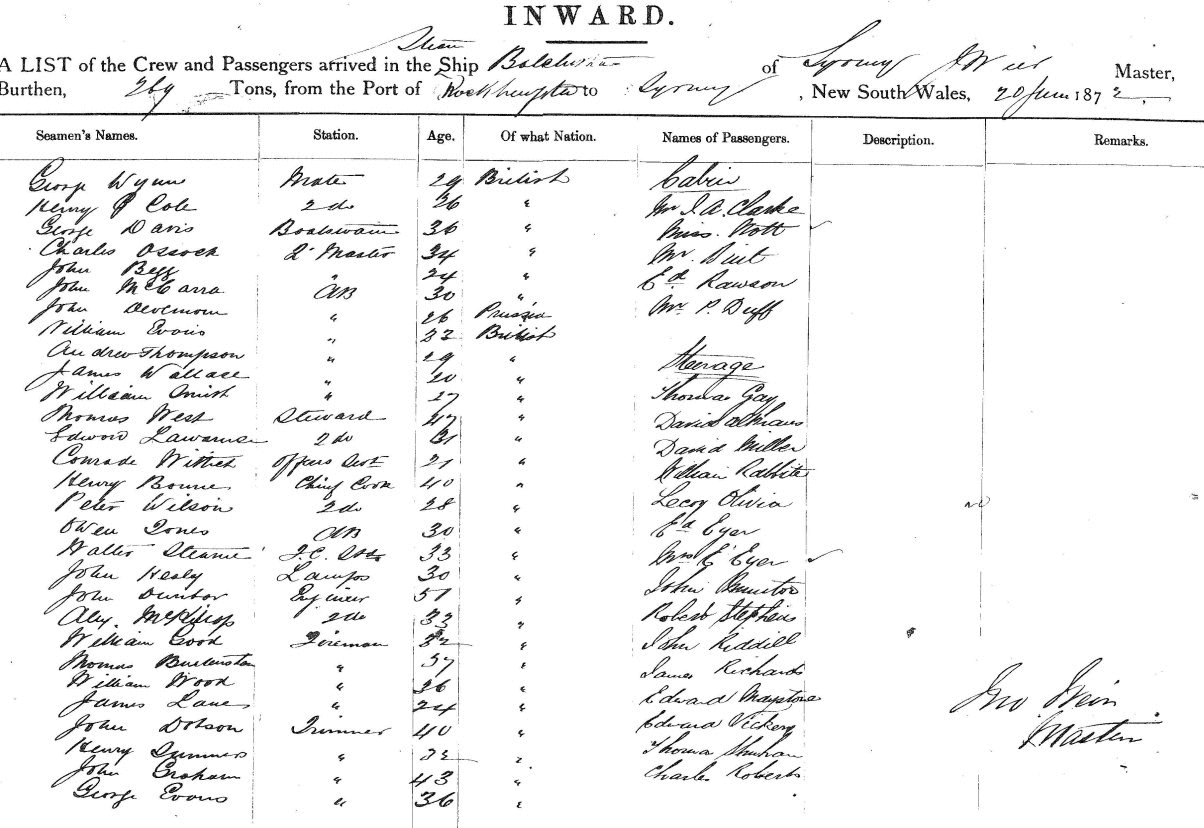 INWARD.
A LIST of the Crew and Passengers arrived in the Steam Ship of Sydney J Weir Master,
Burthen, 269 Tons, from the Port of Rockhampton to Sydney, New South Wales, 20 June 1872
Seamen's Names. Station. Age. Of what Nation. Names of Passengers. Description. Remarks.
George Wynn Mate 29 British Cabin
Henry Cole 2 do 26 " Mr J. A. Clarke
George Davis Boatswain 36 " Miss Wott
Charles Ossock Q Master 34 " Mr
John Begg " 24 " Ed Rawson
John McCarra AB 30 " Mr P. Duff
John " 26 Prussia
William Evans " 32 British
Andrew Thompson " 29 " Steerage
James Wallace " 20 "
William Smith " 27 " Thomas Gay
Thomas West Steward 47 " David
Edword Lawarnse 2 do 31 " David Miller
Conrade Wittich Offiers Servt 21 " William Rabbits
Henry Bourne Chief Cook 40 " Lecoy Olivia
Peter Wilson 2 do 28 "
Owen Jones AB 30 " Ed Eyer
Walter Stearne F.C. Std 33 " Mrs E Eyer
John Healy Lamps 30 "
John Dunbar Engineer 51 " John
Alex. McKillop 2 do 33 " Robert Stephens
William Good Fireman 32 " John Riddill
Thomas " 37 " James Richards
William Wood " 26 "
James Lane " 24 " Edward Maystone
John Dobson Trimmer 40 " Edward Vickery
Henry Summers " 32 " Thomas
John Graham " 43 " Charles Roberts
George Evans " 36 "
Jno Weir
Master